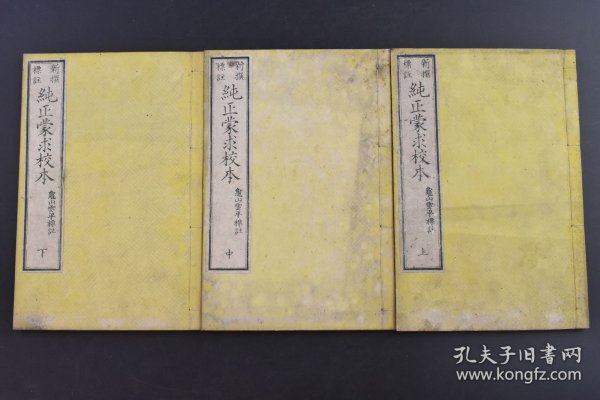 新撰
標註
純正蒙求校本
龜山雲平標註
上
新撰
標註
純正蒙求校本
龜山雲平標註
中
新撰
標註
純正蒙求校本
龜山雲平標註
下
孔夫子旧书网
www.kongfz.com